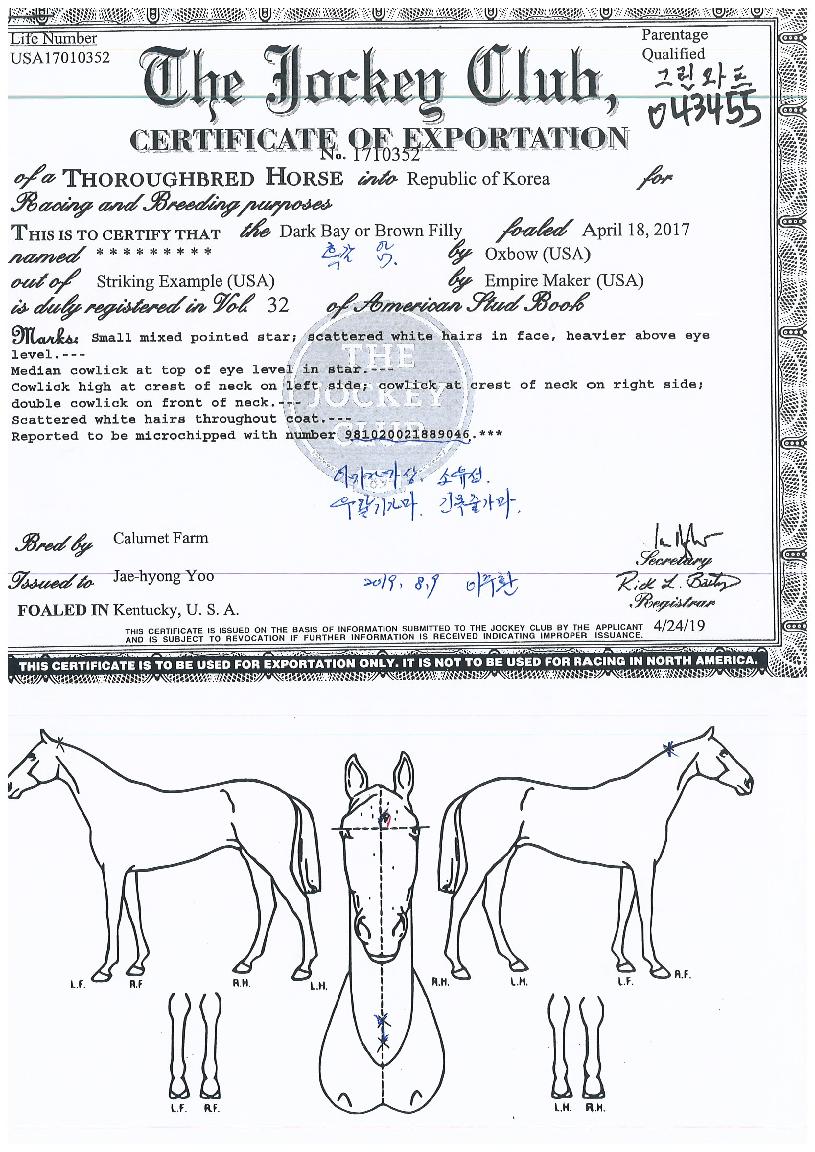 Life Number
USA17010352
Parentage
Qualified
그린와프
043455
The Jockey Club,
CERTIFICATE OF EXPORTATION
No. 1710352
of a THOROUGHBRED HORSE into Republic of Korea for
Racing and Breeding purposes
THIS IS TO CERTIFY THAT the Dark Bay or Brown Filly foaled April 18, 2017
named * * * * * * * * * by Oxbow (USA)
out of Striking Example (USA) by Empire Maker (USA)
is duly registered in Vol. 32 of American Stud Book
Marks: Small mixed pointed star; scattered white hairs in face, heavier above eye
level.---
Median cowlick at top of eye level in star.---
Cowlick high at crest of neck on left side; cowlick at crest of neck on right side;
double cowlick on front of neck.---
Scattered white hairs throughout coat.---
Reported to be microchipped with number 981020021889046.***
THE
JOCKEY
CLUB
Bred by Calumet Farm
Secretary
Issued to Jae-hyong Yoo
2019. 8.9 이주환
Registrar
FOALED IN Kentucky, U. S. A.
THIS CERTIFICATE IS ISSUED ON THE BASIS OF INFORMATION SUBMITTED TO THE JOCKEY CLUB BY THE APPLICANT
AND IS SUBJECT TO REVOCATION IF FURTHER INFORMATION IS RECEIVED INDICATING IMPROPER ISSUANCE. 4/24/19
THIS CERTIFICATE IS TO BE USED FOR EXPORTATION ONLY. IT IS NOT TO BE USED FOR RACING IN NORTH AMERICA.
L.F. R.F R.H. L.H. R.H. L.H. L.F. R.F.
L.F. R.F. L.H. R.H.